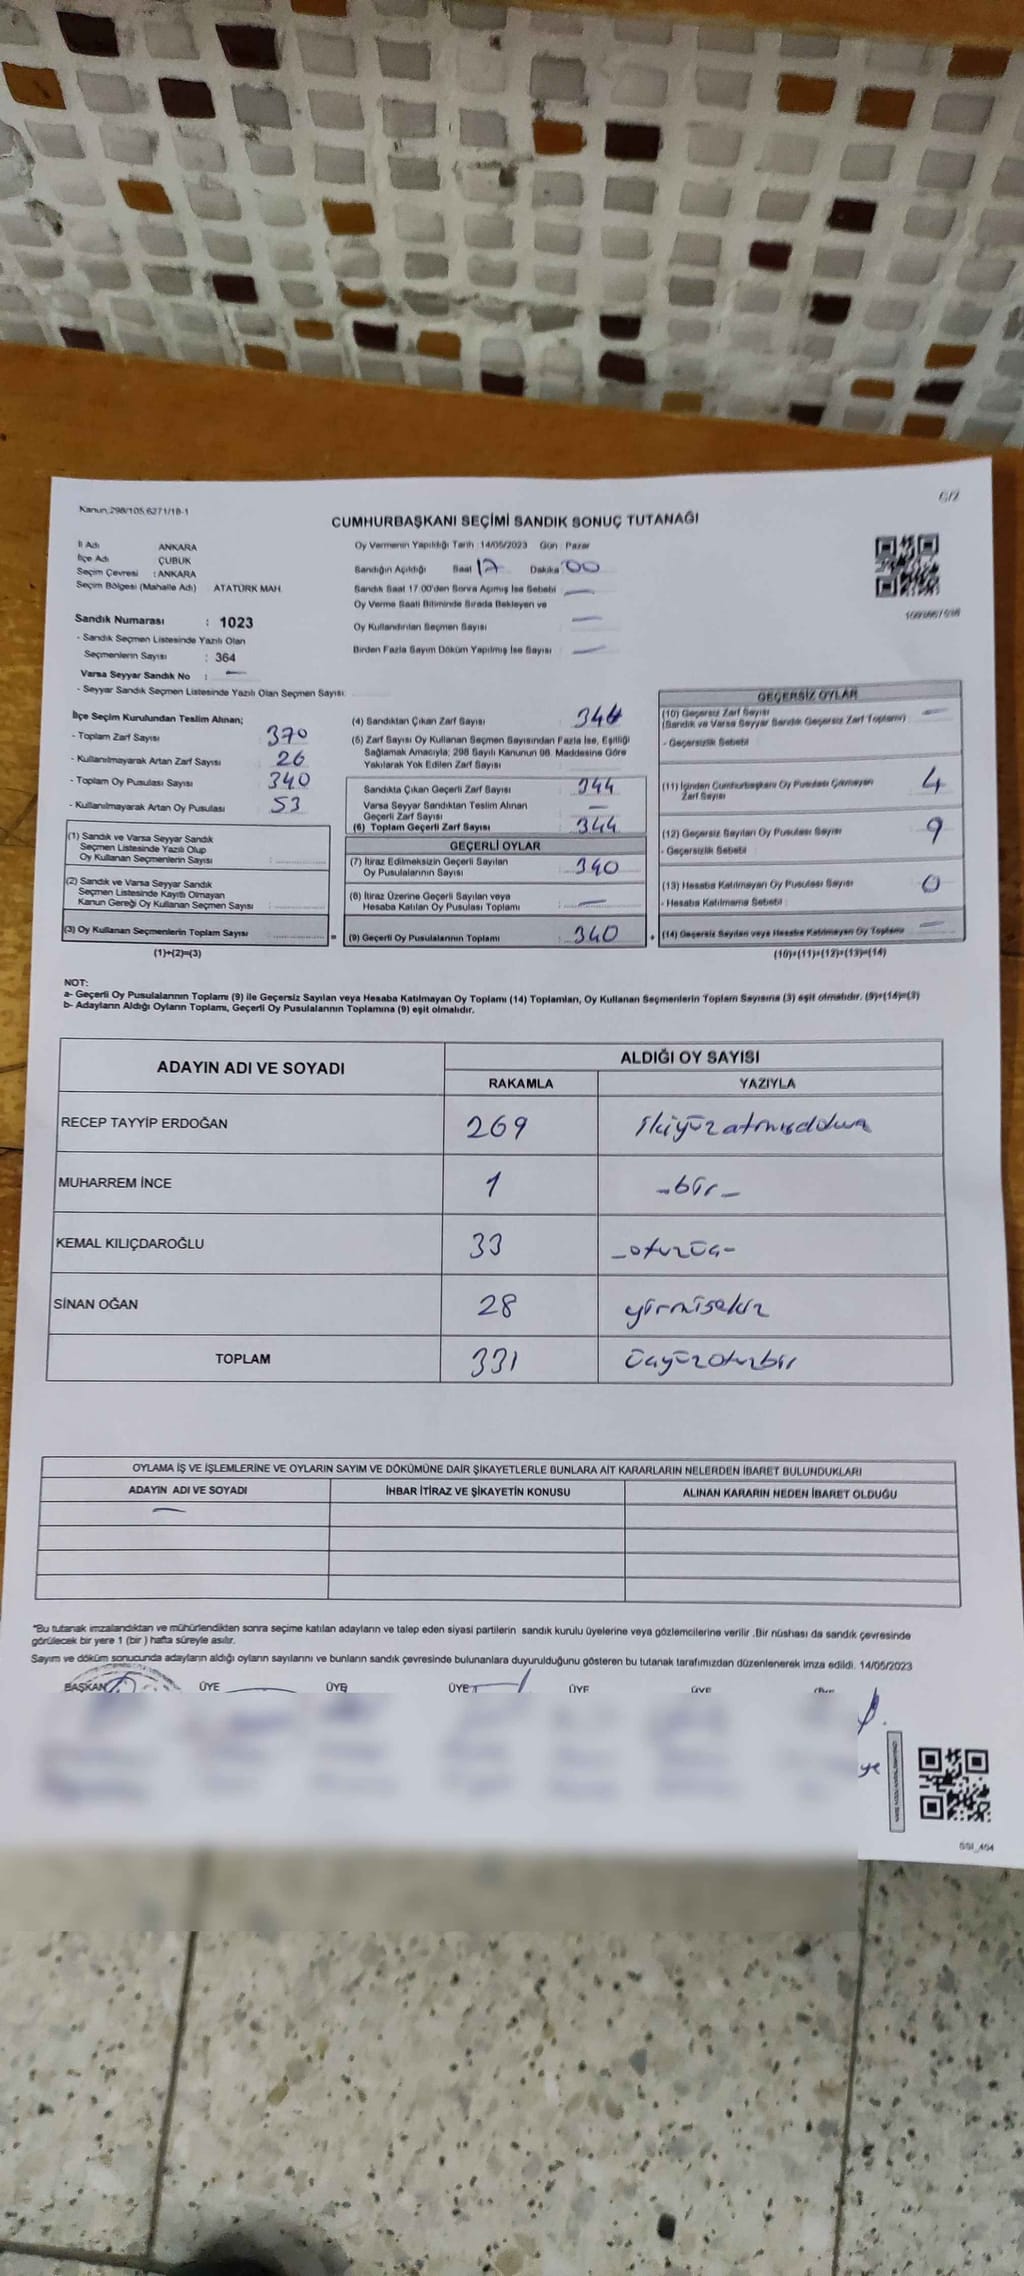 6/2
Kanun;298/105,6271/18-1
CUMHURBAŞKANI SEÇİMİ SANDIK SONUÇ TUTANAĞI
İl Adı ANKARA
İlçe Adı ÇUBUK
Seçim Çevresi : ANKARA
Seçim Bölgesi (Mahalle Adı) ATATÜRK MAH.
Sandık Numarası : 1023
- Sandık Seçmen Listesinde Yazılı Olan
Seçmenlerin Sayısı : 364
Varsa Seyyar Sandık No : —
- Seyyar Sandık Seçmen Listesinde Yazılı Olan Seçmen Sayısı:
Oy Vermenin Yapıldığı Tarih :14/05/2023 Gün : Pazar
Sandığın Açıldığı Saat 17 Dakika 00
Sandık Saat 17.00'den Sonra Açımış İse Sebebi —
Oy Verme Saati Bitiminde Sırada Bekleyen ve
Oy Kullandırılan Seçmen Sayısı —
Birden Fazla Sayım Döküm Yapılmış İse Sayısı —
İlçe Seçim Kurulundan Teslim Alınan;
- Toplam Zarf Sayısı 370
- Kullanılmayarak Artan Zarf Sayısı 26
- Toplam Oy Pusulası Sayısı 340
- Kullanılmayarak Artan Oy Pusulası 53
(1) Sandık ve Varsa Seyyar Sandık
Seçmen Listesinde Yazılı Olup
Oy Kullanan Seçmenlerin Sayısı :
(2) Sandık ve Varsa Seyyar Sandık
Seçmen Listesinde Kayıtlı Olmayan
Kanun Gereği Oy Kullanan Seçmen Sayısı :
(3) Oy Kullanan Seçmenlerin Toplam Sayısı
(1)+(2)=(3)
(4) Sandıktan Çıkan Zarf Sayısı 344
(5) Zarf Sayısı Oy Kullanan Seçmen Sayısından Fazla İse, Eşitliği
Sağlamak Amacıyla; 298 Sayılı Kanunun 98. Maddesine Göre
Yakılarak Yok Edilen Zarf Sayısı
Sandıkta Çıkan Geçerli Zarf Sayısı 344
Varsa Seyyar Sandıktan Teslim Alınan
Geçerli Zarf Sayısı —
(6) Toplam Geçerli Zarf Sayısı 344
GEÇERLİ OYLAR
(7) İtiraz Edilmeksizin Geçerli Sayılan
Oy Pusulalarının Sayısı : 340
(8) İtiraz Üzerine Geçerli Sayılan veya
Hesaba Katılan Oy Pusulası Toplamı : —
= (9) Geçerli Oy Pusulalarının Toplamı : 340
GEÇERSİZ OYLAR
(10) Geçersiz Zarf Sayısı —
(Sandık ve Varsa Seyyar Sandık Geçersiz Zarf Toplamı)
- Geçersizlik Sebebi
(11) İçinden Cumhurbaşkanı Oy Pusulası Çıkmayan 4
Zarf Sayısı
(12) Geçersiz Sayılan Oy Pusulası Sayısı 9
- Geçersizlik Sebebi
(13) Hesaba Katılmayan Oy Pusulası Sayısı 0
- Hesaba Katılmama Sebebi :
+ (14) Geçersiz Sayılan veya Hesaba Katılmayan Oy Toplamı —
(10)+(11)+(12)+(13)=(14)
NOT:
a- Geçerli Oy Pusulalarının Toplamı (9) ile Geçersiz Sayılan veya Hesaba Katılmayan Oy Toplamı (14) Toplamları, Oy Kullanan Seçmenlerin Toplam Sayısına (3) eşit olmalıdır. (9)+(14)=(3)
b- Adayların Aldığı Oyların Toplamı, Geçerli Oy Pusulalarının Toplamına (9) eşit olmalıdır.
ADAYIN ADI VE SOYADI ALDIĞI OY SAYISI
RAKAMLA YAZIYLA
RECEP TAYYİP ERDOĞAN 269 ikiyüzatmışdokuz
MUHARREM İNCE 1 -bir-
KEMAL KILIÇDAROĞLU 33 -otuzüç-
SİNAN OĞAN 28 yirmisekiz
TOPLAM 331 üçyüzotuzbir
OYLAMA İŞ VE İŞLEMLERİNE VE OYLARIN SAYIM VE DÖKÜMÜNE DAİR ŞİKAYETLERLE BUNLARA AİT KARARLARIN NELERDEN İBARET BULUNDUKLARI
ADAYIN ADI VE SOYADI İHBAR İTİRAZ VE ŞİKAYETİN KONUSU ALINAN KARARIN NEDEN İBARET OLDUĞU
—
*Bu tutanak imzalandıktan ve mühürlendikten sonra seçime katılan adayların ve talep eden siyasi partilerin sandık kurulu üyelerine veya gözlemcilerine verilir .Bir nüshası da sandık çevresinde
görülecek bir yere 1 (bir ) hafta süreyle asılır.
Sayım ve döküm sonucunda adayların aldığı oyların sayılarını ve bunların sandık çevresinde bulunanlara duyurulduğunu gösteren bu tutanak tarafımızdan düzenlenerek imza edildi. 14/05/2023
BAŞKAN ÜYE ÜYE ÜYE ÜYE ÜYE
ye